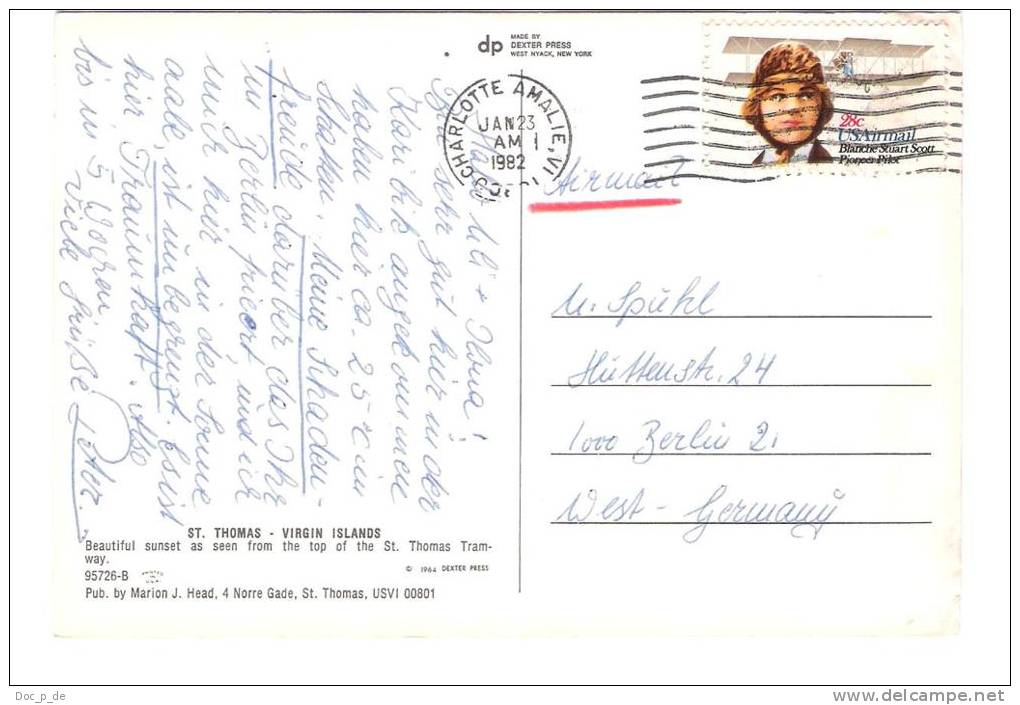 dp
MADE BY
DEXTER PRESS
WEST NYACK, NEW YORK
CHARLOTTE AMALIE, VI
JAN 23
AM 1
1982
28c
USAirmail
Blanche Stuart Scott
Pioneer Pilot
Airmail
Uli + Ilona!
Bin sehr gut hier in der
Karibik angekommen
haben hier ca. 25°C im
Schatten. Meine Schaden-
freude darüber das Ihr
in Berlin friert und ich
mich hier in der Sonne
aale, ist unbegrenzt. Es ist
hier Traumhaft. Also
bis in 5 Wochen
Viele Grüße Peter.
U. Spühl
Hüttenstr. 24
1000 Berlin 21
West - Germany
ST. THOMAS - VIRGIN ISLANDS
Beautiful sunset as seen from the top of the St. Thomas Tram-
way.
© 1964 DEXTER PRESS
95726-B
Pub. by Marion J. Head, 4 Norre Gade, St. Thomas, USVI 00801
Doc_p_de
www.delcampe.net